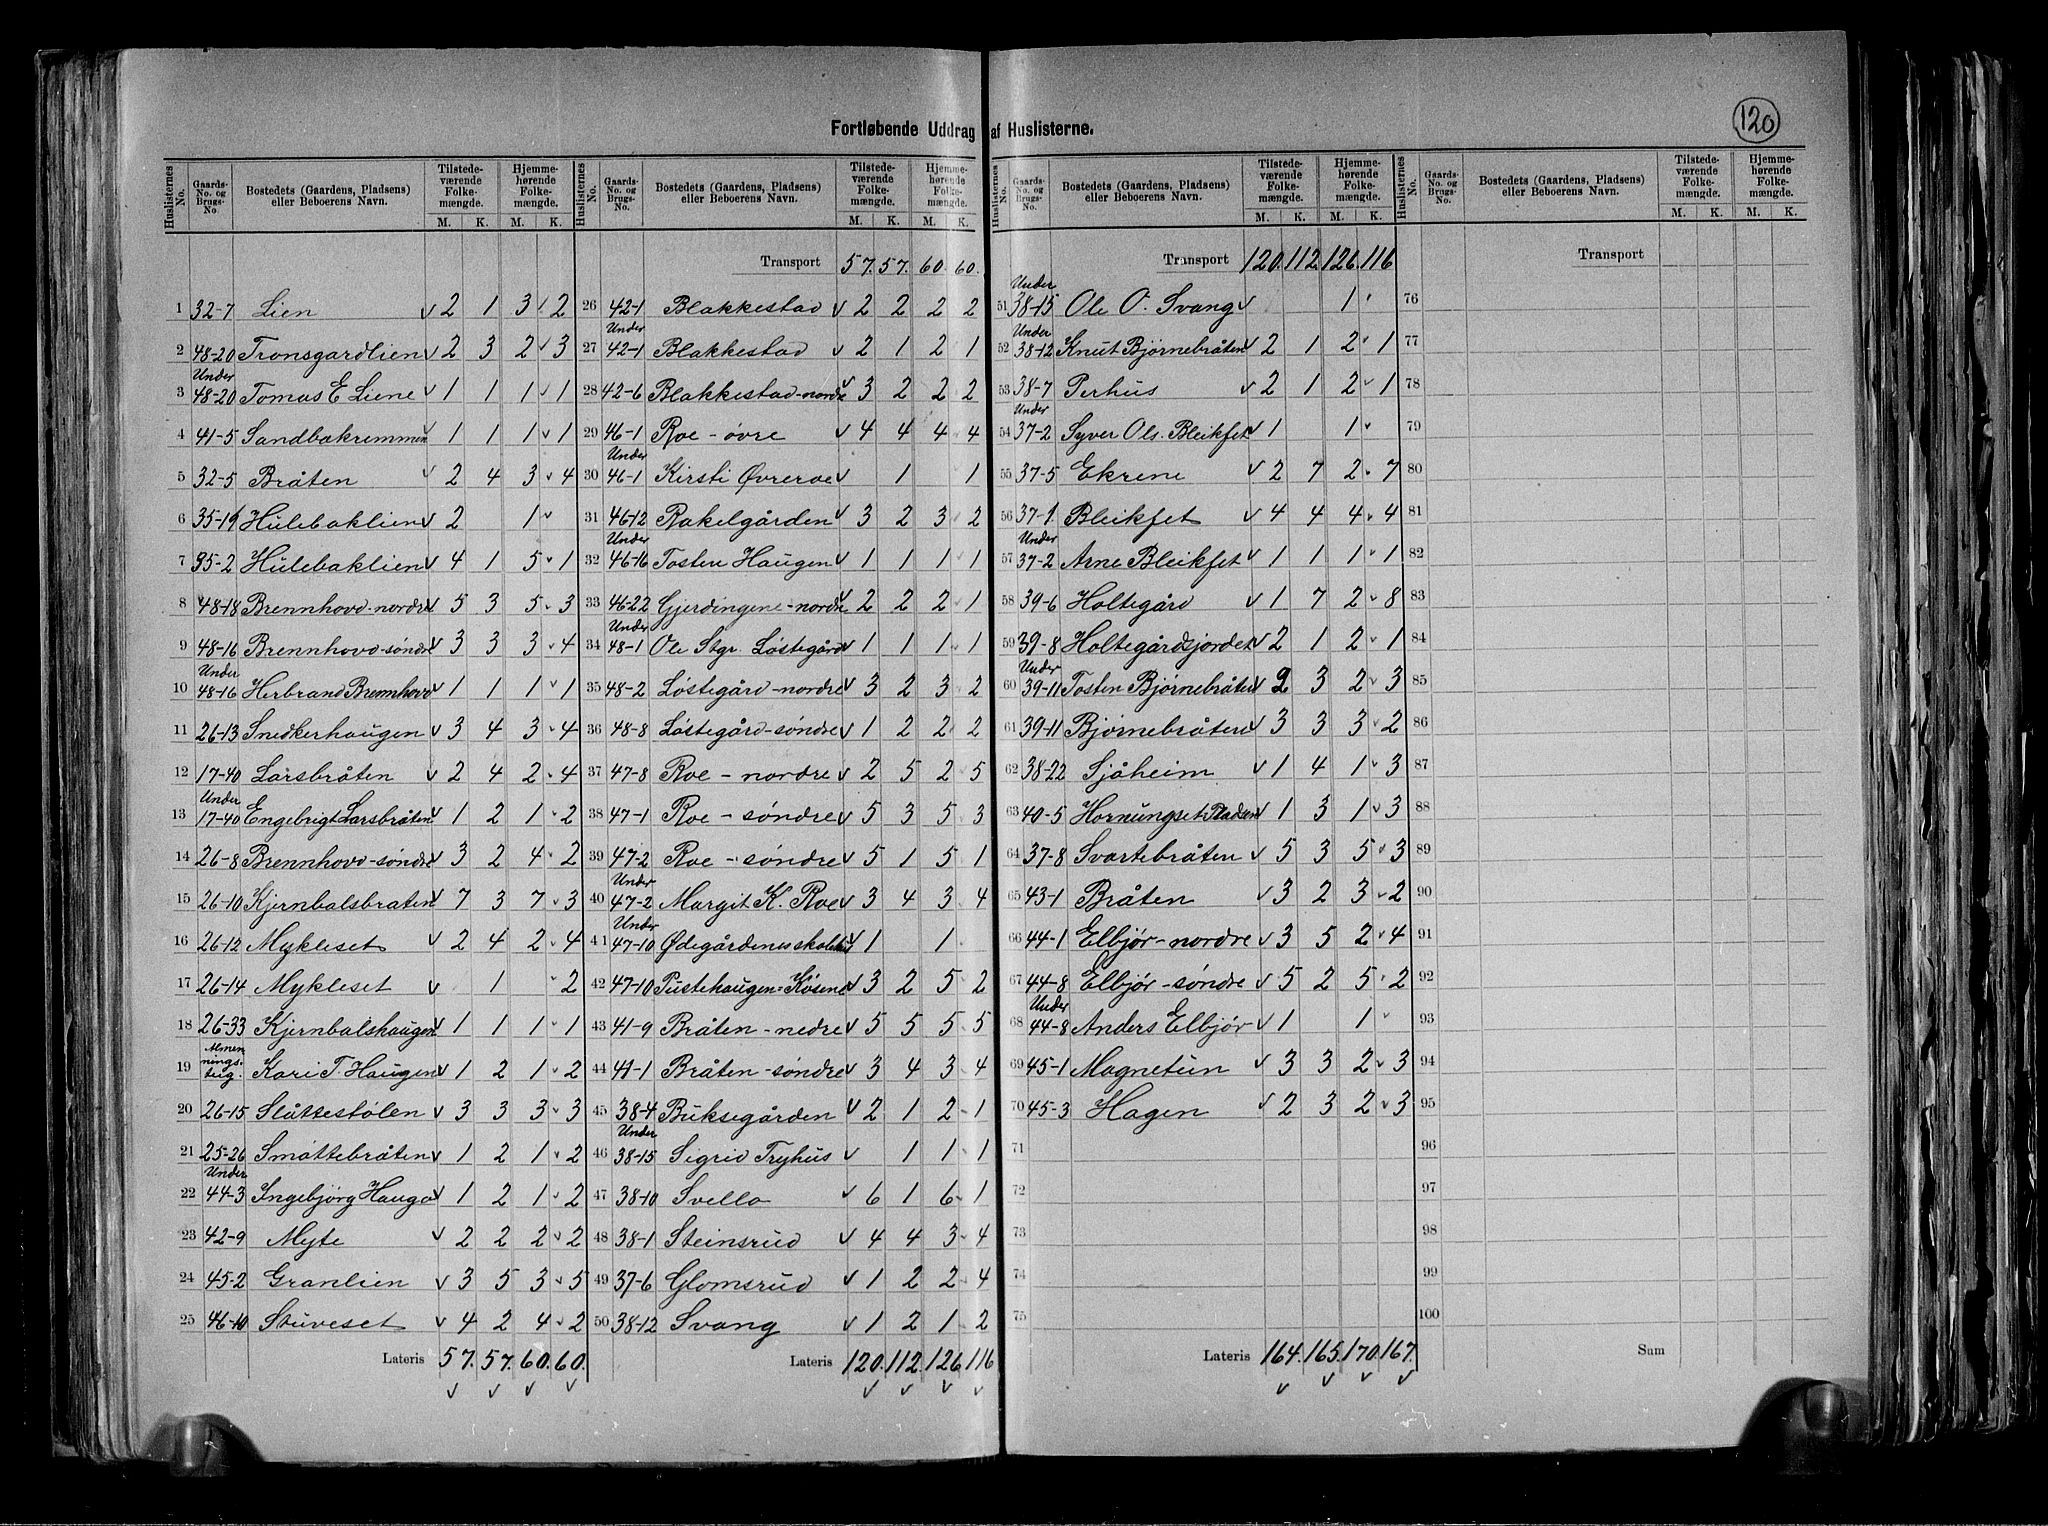 120
Fortløbende Uddrag af Huslisterne.
Huslisternes No. Gaards-No. og Brugs-No. Bostedets (Gaardens, Pladsens) eller Beboerens Navn. Tilstedeværende Folkemængde. M. K. Hjemmehørende Folkemængde. M. K.
1 32-7 Lien 2 1 3 2
2 48-20 Tronsgardlien 2 3 2 3
3 Under 48-20 Tomas E Liene 1 1 1 1
4 41-5 Sandbakremmen 1 1 1 1
5 32-5 Bråten 2 4 3 4
6 35-19 Hulebaklien 2 1
7 35-2 Hulebaklien 4 1 5 1
8 48-18 Brennhovd-nordre 5 3 5 3
9 48-16 Brennhovd-søndre 3 3 3 4
10 Under 48-16 Herbrand Brennhovd 1 1 1 1
11 26-13 Snedkerhaugen 3 4 3 4
12 17-40 Larsbråten 2 4 2 4
13 Under 17-40 Engebrigt Larsbråten 1 2 1 2
14 26-8 Brennhovd-søndre 3 2 4 2
15 26-10 Kjernbalsbraten 7 3 7 3
16 26-12 Mykleset 2 4 2 4
17 26-14 Mykleset 1 2
18 26-33 Kjernbalshaugen 1 1 1 1
19 Almenningstug. Kari T. Haugen 1 2 1 2
20 26-15 Slåttestølen 3 3 3 3
21 25-26 Smøttebråten 1 2 1 2
22 Under 44-3 Ingebjørg Hauga 1 2 1 2
23 42-9 Myte 2 2 2 2
24 45-2 Granlien 3 5 3 5
25 46-10 Stuveset 4 2 4 2
Lateris 57. 57. 60. 60.
Huslisternes No. Gaards-No. og Brugs-No. Bostedets (Gaardens, Pladsens) eller Beboerens Navn. Tilstedeværende Folkemængde. M. K. Hjemmehørende Folkemængde. M. K.
Transport 57. 57. 60. 60.
26 42-1 Blakkestad 2 2 2 2
27 Under 42-1 Blakkestad 2 1 2 1
28 42-6 Blakkestad-nordre 3 2 2 2
29 46-1 Roe - øvre 4 4 4 4
30 Under 46-1 Kirsti Øvreroe 1 1
31 46-12 Rakelgården 3 2 3 2
32 Under 46-16 Tosten Haugen 1 1 1 1
33 46-22 Gjerdingene-nordre 2 2 2 1
34 Under 48-1 Ole Stgr. Løstegård 1 1 1 1
35 48-2 Løstegård-nordre 3 2 3 2
36 48-8 Løstegård-søndre 1 2 2 2
37 47-8 Roe - nordre 2 5 2 5
38 47-1 Roe - søndre 5 3 5 3
39 47-2 Roe - søndre 5 1 5 1
40 Under 47-2 Margit K. Roe 3 4 3 4
41 Under 47-10 Ødegårdenes 1 1
42 47-10 Pustehaugen-Køsene 3 2 5 2
43 41-9 Bråten - nedre 5 5 5 5
44 41-1 Bråten - søndre 3 4 3 4
45 38-4 Buksegården 2 1 2 1
46 Under 38-15 Sigrid Tryhus 1 1 1
47 38-10 Svello 6 1 6 1
48 38-1 Steinsrud 4 4 3 4
49 37-6 Glomsrud 1 2 2 4
50 38-12 Svang 1 2 1 2
Lateris 120. 112. 126 116
Huslisternes No. Gaards-No. og Brugs-No. Bostedets (Gaardens, Pladsens) eller Beboerens Navn. Tilstedeværende Folkemængde. M. K. Hjemmehørende Folkemængde. M. K.
Transport 120. 112 126. 116
51 Under 38-15 Ole O. Svang 1
52 Under 38-12 Knut Bjørnebråten 2 1 2 1
53 38-7 Perhus 2 1 2 1
54 Under 37-2 Syver Ols. Bleikfet 1 1
55 37-5 Ekrene 2 7 2 7
56 37-1. Bleikfet 4 4 4 4
57 Under 37-2 Arne Bleikfet 1 1 1 1
58 39-6 Holtegård 1 7 2 8
59 39-8 Holtegårdsjordet 2 1 2 1
60 Under 39-11 Tosten Bjørnebråten 2 3 2 3
61 39-11 Bjørnebråten 3 3 3 2
62 38-22 Sjåheim 1 4 1 3
63 40-5 Hornungset Pladsen 1 3 1 3
64 37-8 Svartebråten 5 3 5 3
65 43-1 Bråten 3 2 3 2
66 44-1 Elbjør-nordre 3 5 2 4
67 44-8 Elbjør-søndre 5 2 5 2
68 Under 44-8 Anders Elbjør 1 1
69 45-1 Magnetun 3 3 2 3
70 45-3 Hagen 2 3 2 3
71
72
73
74
75
Lateris 164. 165. 170. 167.
Huslisternes No. Gaards-No. og Brugs-No. Bostedets (Gaardens, Pladsens) eller Beboerens Navn. Tilstedeværende Folkemængde. M. K. Hjemmehørende Folkemængde. M. K.
Transport
76
77
78
79
80
81
82
83
84
85
86
87
88
89
90
91
92
93
94
95
96
97
98
99
100
Sum